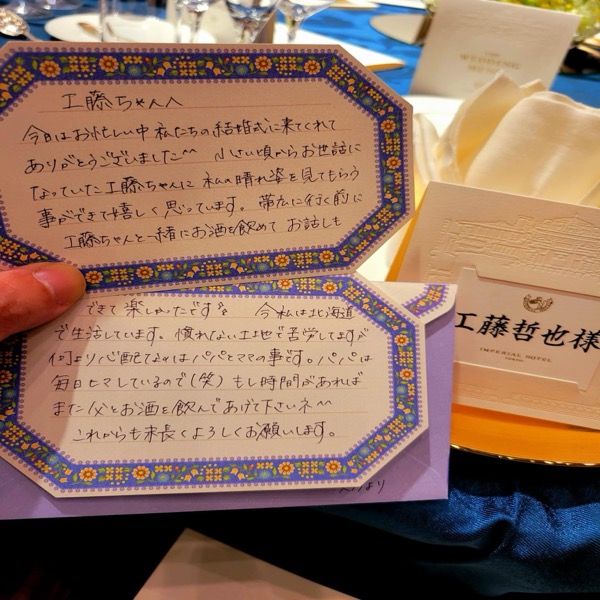 工藤ちゃんへ
今日はお忙しい中 私たちの結婚式に来てくれて
ありがとうございました^^ 小さい頃からお世話に
なっていた工藤ちゃんに 私の晴れ姿を見てもらう
事ができて嬉しく思っています。 帯広に行く前に
工藤ちゃんと一緒にお酒を飲めて お話しも
できて楽しかったです 今私は北海道
で生活しています。慣れない土地で苦労してますが
何より心配なのはパパとママの事です。パパは
毎日ヒマしているので(笑) もし時間があれば
また父とお酒を飲んであげて下さいネ^^
これからも末長くよろしくお願いします。
より
WEDDING
工藤哲也様
IMPERIAL HOTEL